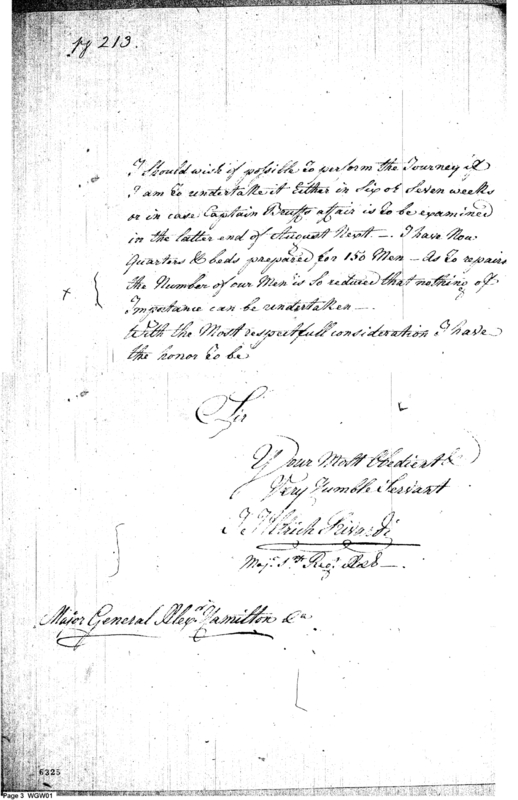 pg 213.
I Should wish if possible to perform the Journey if
I am to undertake it Either in Six or Seven weeks
or in case Captain Bruffs affair is to be examined
in the latter end of August Next —. I have Now
Quarters & beds prepared for 150 Men — As to repairs
the Number of our Men is So reduced that nothing of
Importance can be undertaken —.
With the Most respectfull consideration I have
the honor to be
Sir
Your Most Obedient &
Very humble Servant
J J Ulrich Rivardi
Majr. 1st Regt.
Major General Alexr. Hamilton &a
6325
Page 3 WGW01